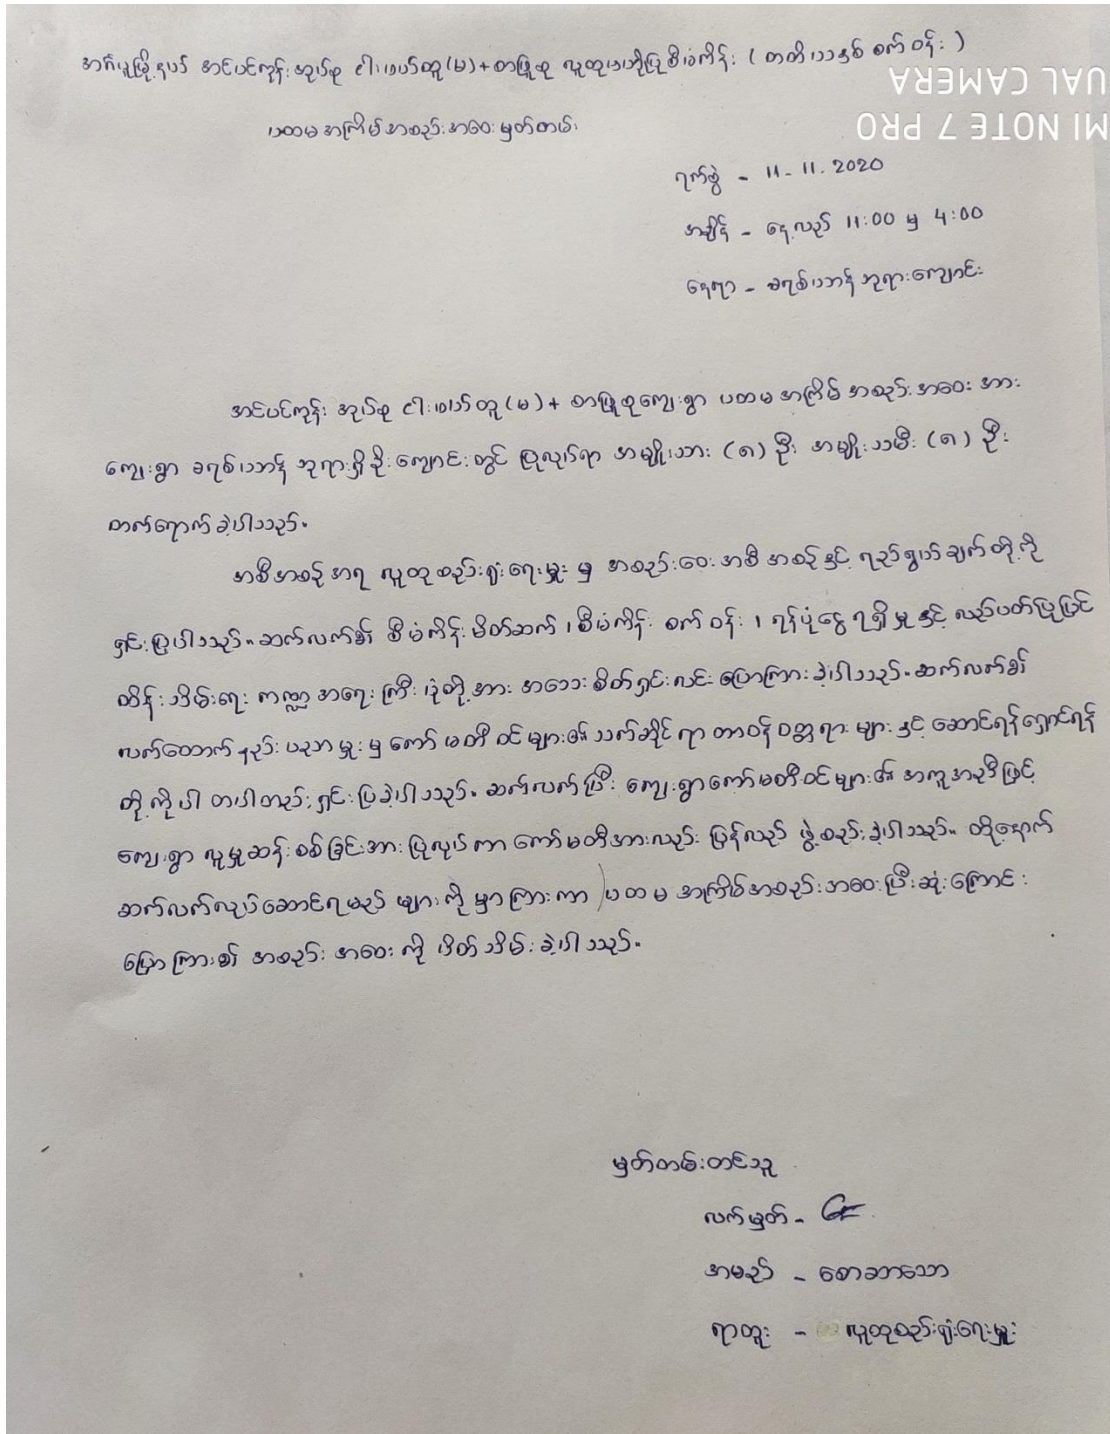 အင်္ဂပူမြို့နယ် အင်ပင်ကုန်းအုပ်စု ငါးဖယ်ထူ(မ)+တာဖြူစု လူထုဗဟိုပြုစီမံကိန်း (တတိယနှစ် စက်ဝန်း)
AL CAMERA
MI NOTE 7 PRO
ပထမအကြိမ်အစည်းအဝေးမှတ်တမ်း
ရက်စွဲ - 11-11.2020
အချိန် - နေ့လည် 11:00 မှ 4:00
နေရာ - ခရစ်ယာန်ဘုရားကျောင်း
အင်ပင်ကုန်း အုပ်စု ငါးဖယ်ထူ(မ)+ တာဖြူစုကျေးရွာ ပထမအကြိမ် အစည်းအဝေးအား
ကျေးရွာ ခရစ်ယာန် ဘုရားရှိခိုးကျောင်းတွင် ပြုလုပ်ရာ အမျိုးသား (၈) ဦး အမျိုးသမီး (၈) ဦး
တက်ရောက်ခဲ့ပါသည်။
အစီအစဉ်အရ လူထုစည်းရုံးရေးမှူး မှ အစည်းဝေးအစီအစဉ်နှင့် ရည်ရွယ်ချက်တို့ကို
ရှင်းပြပါသည်။ ဆက်လက်၍ စီမံကိန်းမိတ်ဆက်၊ စီမံကိန်း စက်ဝန်း၊ ရန်ပုံငွေရရှိမှုနှင့် လည်ပတ်ပြုပြင်
ထိန်းသိမ်းရေး ကဏ္ဍအရေးကြီးပုံတို့အား အသေးစိတ်ရှင်းလင်းပြောကြားခဲ့ပါသည်။ ဆက်လက်၍
လက်ထောက်နည်းပညာမှူးမှ ကော်မတီဝင်များ၏ သက်ဆိုင်ရာ တာဝန်ဝတ္တရားများနှင့် ဆောင်ရန်ရှောင်ရန်
တို့ကိုပါ တပါတည်းရှင်းပြခဲ့ပါသည်။ ဆက်လက်ပြီး ကျေးရွာကော်မတီဝင်များ၏ အကူအညီဖြင့်
ကျေးရွာ လူမှုဆန်းစစ်ခြင်းအား ပြုလုပ်ကာ ကော်မတီအားလည်း ပြန်လည် ဖွဲ့စည်းခဲ့ပါသည်။ ထို့နောက်
ဆက်လက်လုပ်ဆောင်ရမည် များကို မှာကြားကာ ပထမ အကြိမ်အစည်းအဝေးပြီးဆုံးကြောင်း
ပြောကြား၍ အစည်းအဝေးကို ပိတ်သိမ်းခဲ့ပါသည်။
မှတ်တမ်းတင်သူ
လက်မှတ် -
အမည် - စောဆာသော
ရာထူး - လူထုစည်းရုံးရေးမှူး